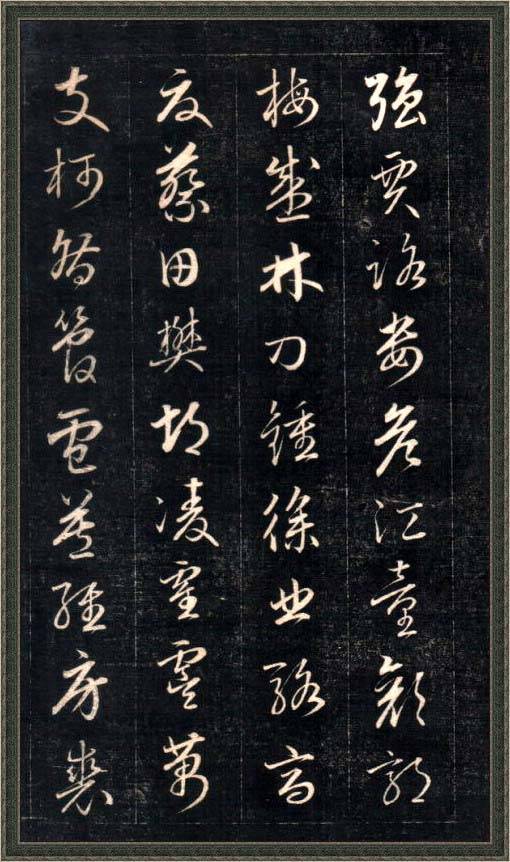 強賈路婁危江童顏郭
梅盛林刁鍾徐丘駱高
夏蔡田樊胡凌霍虞萬
支柯昝管盧莫經房裘